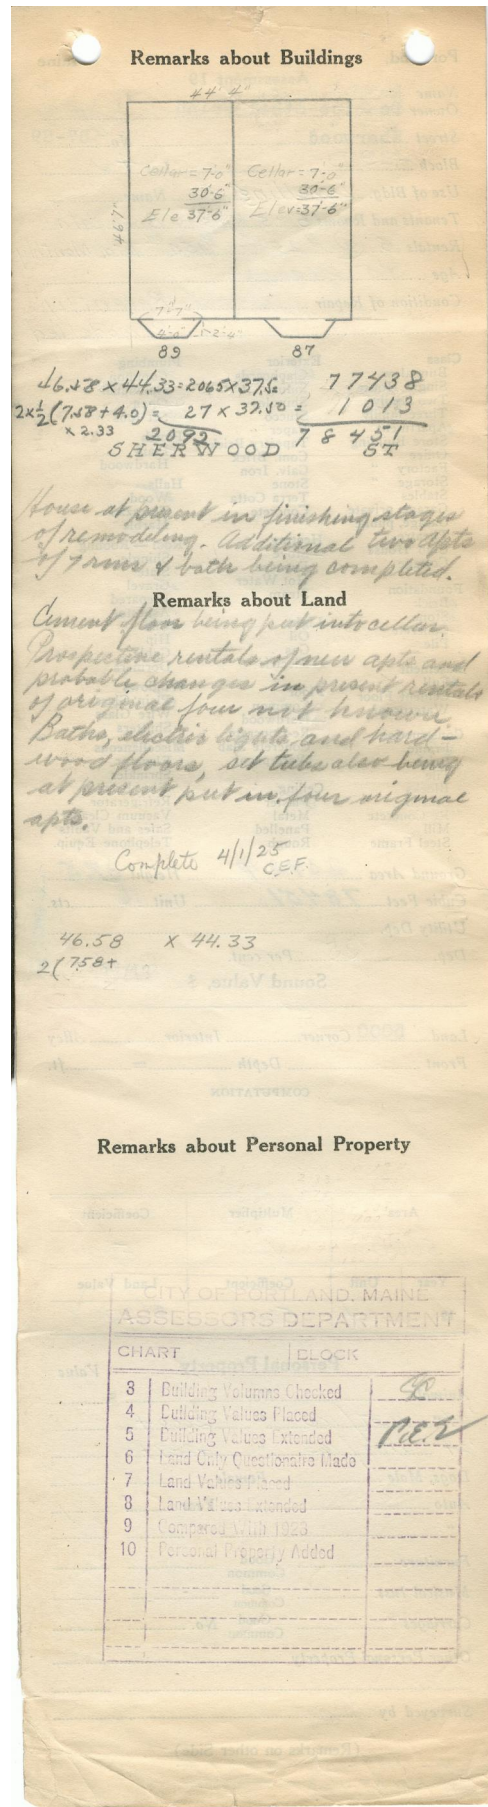 Remarks about Buildings
44' 4"
Cellar = 7'-0" Cellar = 7'-0"
30'-6" 30'-6"
Ele 37'-6" Elev = 37'-6"
46'7"
7'-7"
4'-0" 2'-4"
89 87
46.58 x 44.33 = 2065 x 37.50 77438
2x½(7.58 + 4.0) = 27 x 37.50 = 1013
x 2.33 2092 78451
SHERWOOD ST
House at present in finishing stages
of remodeling. Additional two apts
of 7 rms & bath being completed.
Remarks about Land
Cement floor being put into cellar.
Prospective rentals of new apts and
probable changes in present rentals
of original four not known.
Baths, electric lights and hard-
wood floors, set tubs also being
at present put in four original
apts.
Complete 4/1/25
C.E.F.
46.58 x 44.33
2(7.58+
Remarks about Personal Property
CITY OF PORTLAND, MAINE
ASSESSORS DEPARTMENT
CHART BLOCK
3 Building Volumns Checked
4 Building Values Placed
5 Building Values Extended
6 Land Only Questionaire Made
7 Land Values Placed
8 Land Values Extended
9 Compared With 1923
10 Personal Property Added